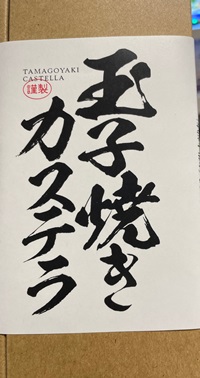 玉子焼き
カステラ
TAMAGOYAKI
CASTELLA
謹製